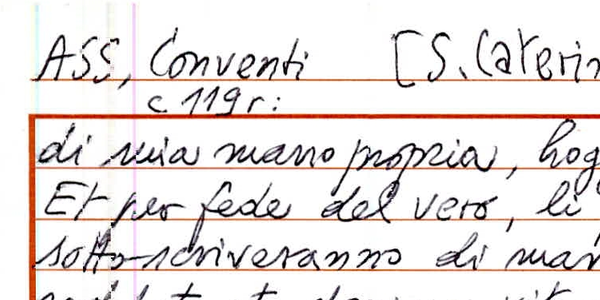 ASS, Conventi [S. Caterin
c 119 r:
di mia mano propria, hog
Et per fede del vero, li
sotto-scriveranno di man